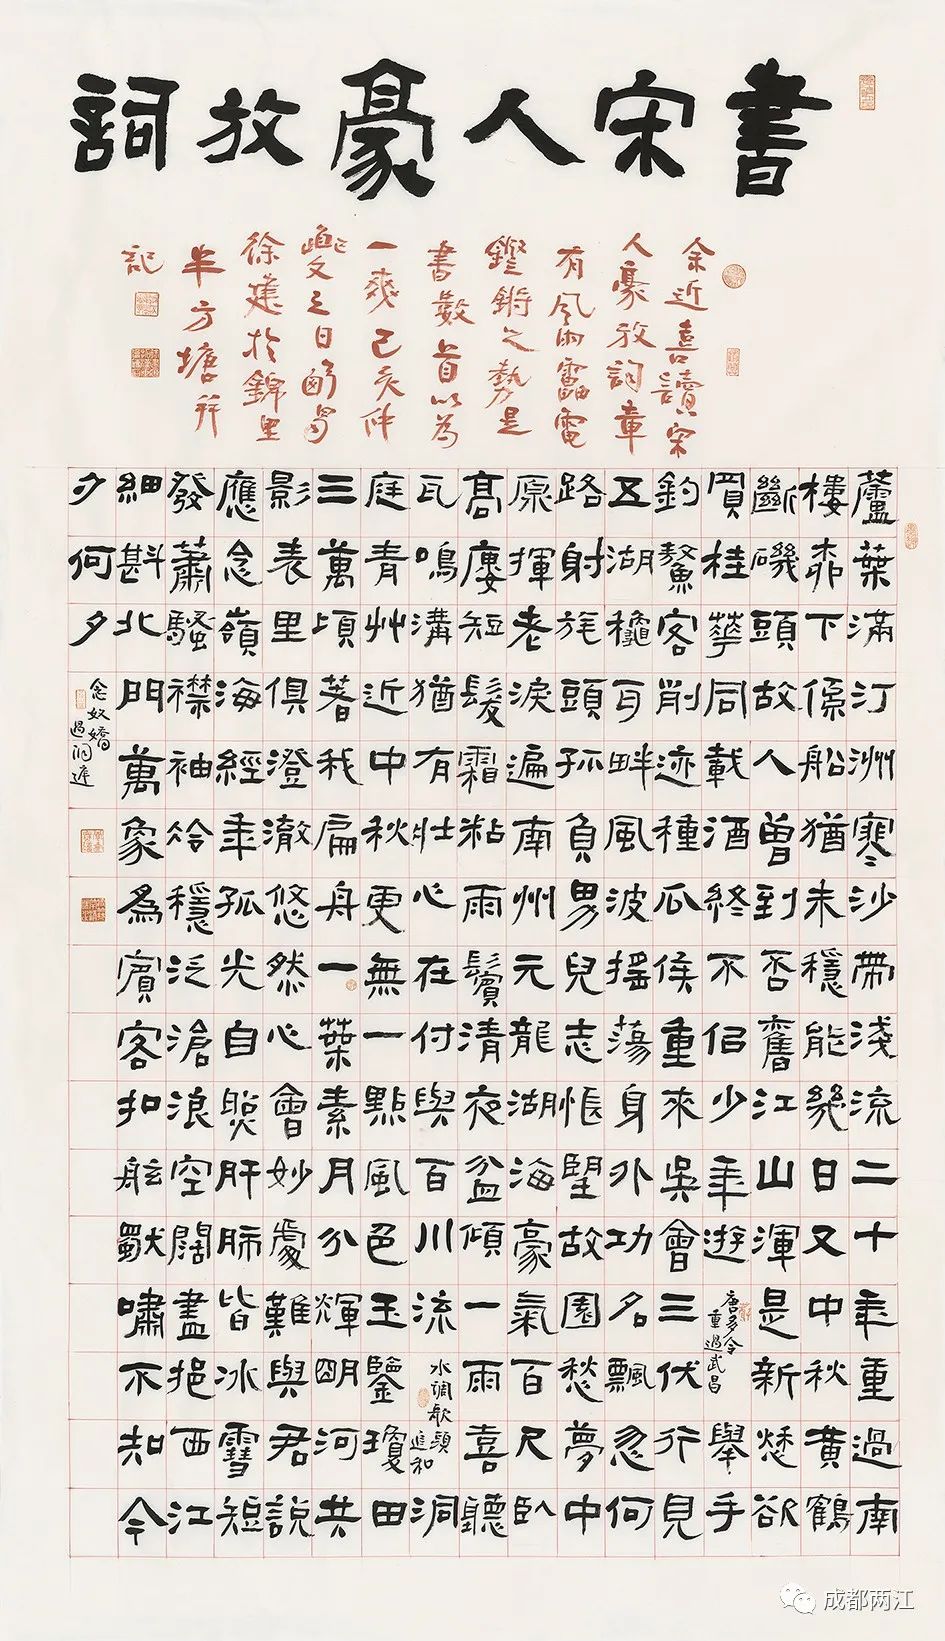 書宋人豪放詞
余近喜讀宋
人豪放詞章
有風雨靁電
鏗鏘之勢是
書數首以為
一爽己亥仲
之日
徐建於錦里
半方塘并
記
蘆葉滿汀洲寒沙帶淺流二十年重過南
樓柳下係船猶未穩能幾日又中秋黃鶴
斷磯頭故人曾到否舊江山渾是新愁欲
買桂華同載酒終不侣少年遊
唐多令
重過武昌
舉手
釣鰲客削迹種瓜侯重來吳會三伏行見
五湖穐耳畔風波搖蕩身外功名飄忽何
路射旄頭孤負男兒志悵望故園愁夢中
原揮老淚遍南州元龍湖海豪氣百尺臥
高廔短髮霜粘雨鬢清夜盆傾一雨喜聽
瓦鳴溝猶有壯心在付與百川流
水調歌頭
追和
洞
庭青艸近中秋更無一點風色玉鑒瓊田
三萬頃著我扁舟一葉素月分輝明河共
影表里俱澄澈悠然心會妙處難與君說
應念嶺海經年孤光自照肝肺皆冰雪短
發蕭騷襟袖冷穩泛滄浪空闊盡挹西江
細斟北門萬象為賓客扣舷獨嘯不知今
夕何夕
念奴嬌
過洞庭
成都两江